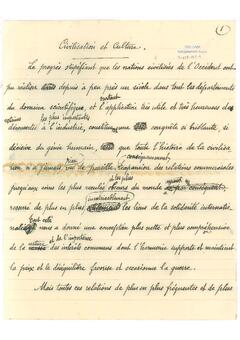 1
Civilisation et Culture.
Le progrès stupéfiant que les nations civilisées de l'Occident ont
pu réaliser depuis à peu près un siècle dans tous les départements
du domaine scientifique, et l'application très utile et très heureuse des
découvertes à l'industrie, constituent une conquête si brillante, si
décisive du génie humain, que toute l'histoire de la civilisa
tion n'a jamais rien vu de pareil. L'expansion des relations commerciales
jusqu'aux coins les plus reculés du monde
resserré de plus en plus les liens de la solidarité internatio
nale, nous a donné une conception plus nette et plus compréhensive
de la nature et de l'importance des intérêts communs dont l'harmonie supporte et maintient
la paix et le déséquilibre favorise et occasionne la guerre.
Mais toutes ces relations de plus en plus fréquentes et de plus